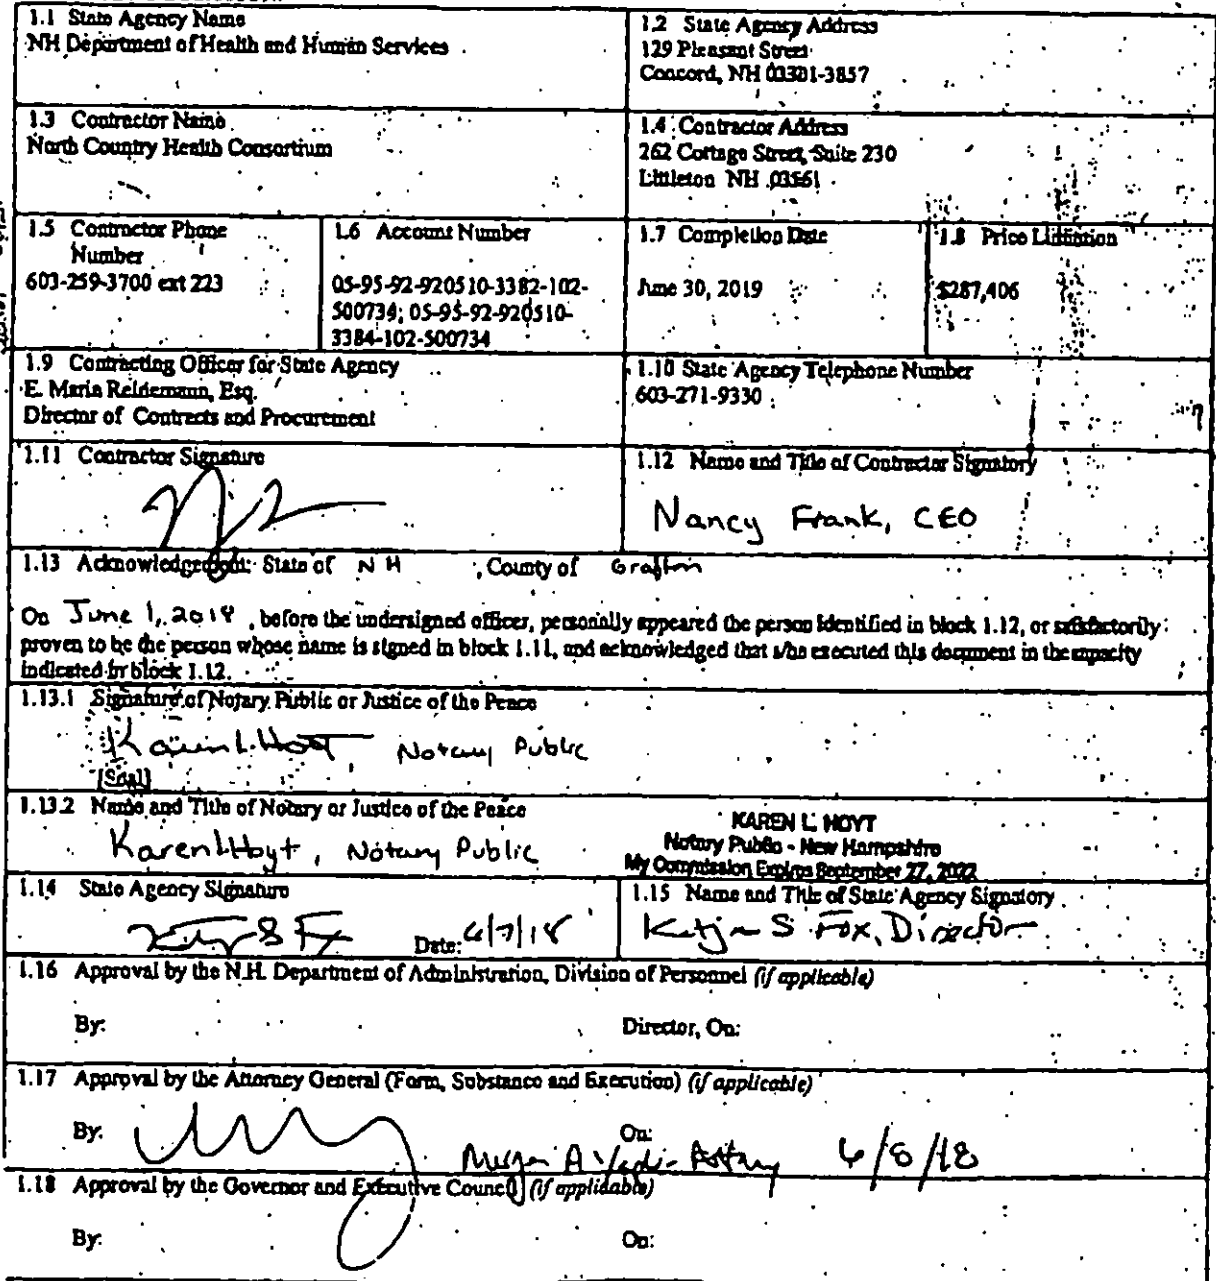 1.1 State Agency Name
NH Department of Health and Human Services
1.2 State Agency Address
129 Pleasant Street
Concord, NH 03301-3857
1.3 Contractor Name
North Country Health Consortium
1.4 Contractor Address
262 Cottage Street, Suite 230
Littleton NH 03561
1.5 Contractor Phone
Number
603-259-3700 ext 223
1.6 Account Number
05-95-92-920510-3382-102-
500734; 05-95-92-920510-
3384-102-500734
1.7 Completion Date
June 30, 2019
1.8 Price Limitation
$287,406
1.9 Contracting Officer for State Agency
E. Maria Reinemann, Esq.
Director of Contracts and Procurement
1.10 State Agency Telephone Number
603-271-9330
1.11 Contractor Signature
1.12 Name and Title of Contractor Signatory
Nancy Frank, CEO
1.13 Acknowledgement: State of NH , County of Grafton
On June 1, 2018 , before the undersigned officer, personally appeared the person identified in block 1.12, or satisfactorily
proven to be the person whose name is signed in block 1.11, and acknowledged that s/he executed this document in the capacity
indicated in block 1.12.
1.13.1 Signature of Notary Public or Justice of the Peace
Karen L. Hoyt, Notary Public
[Seal]
1.13.2 Name and Title of Notary or Justice of the Peace
Karen L Hoyt, Notary Public
KAREN L. HOYT
Notary Public - New Hampshire
My Commission Expires September 27, 2022
1.14 State Agency Signature
Date: 6/7/18
1.15 Name and Title of State Agency Signatory
Katja S Fox, Director
1.16 Approval by the N.H. Department of Administration, Division of Personnel (if applicable)
By: Director, On:
1.17 Approval by the Attorney General (Form, Substance and Execution) (if applicable)
By: On:
6/8/18
1.18 Approval by the Governor and Executive Council (if applicable)
By: On: